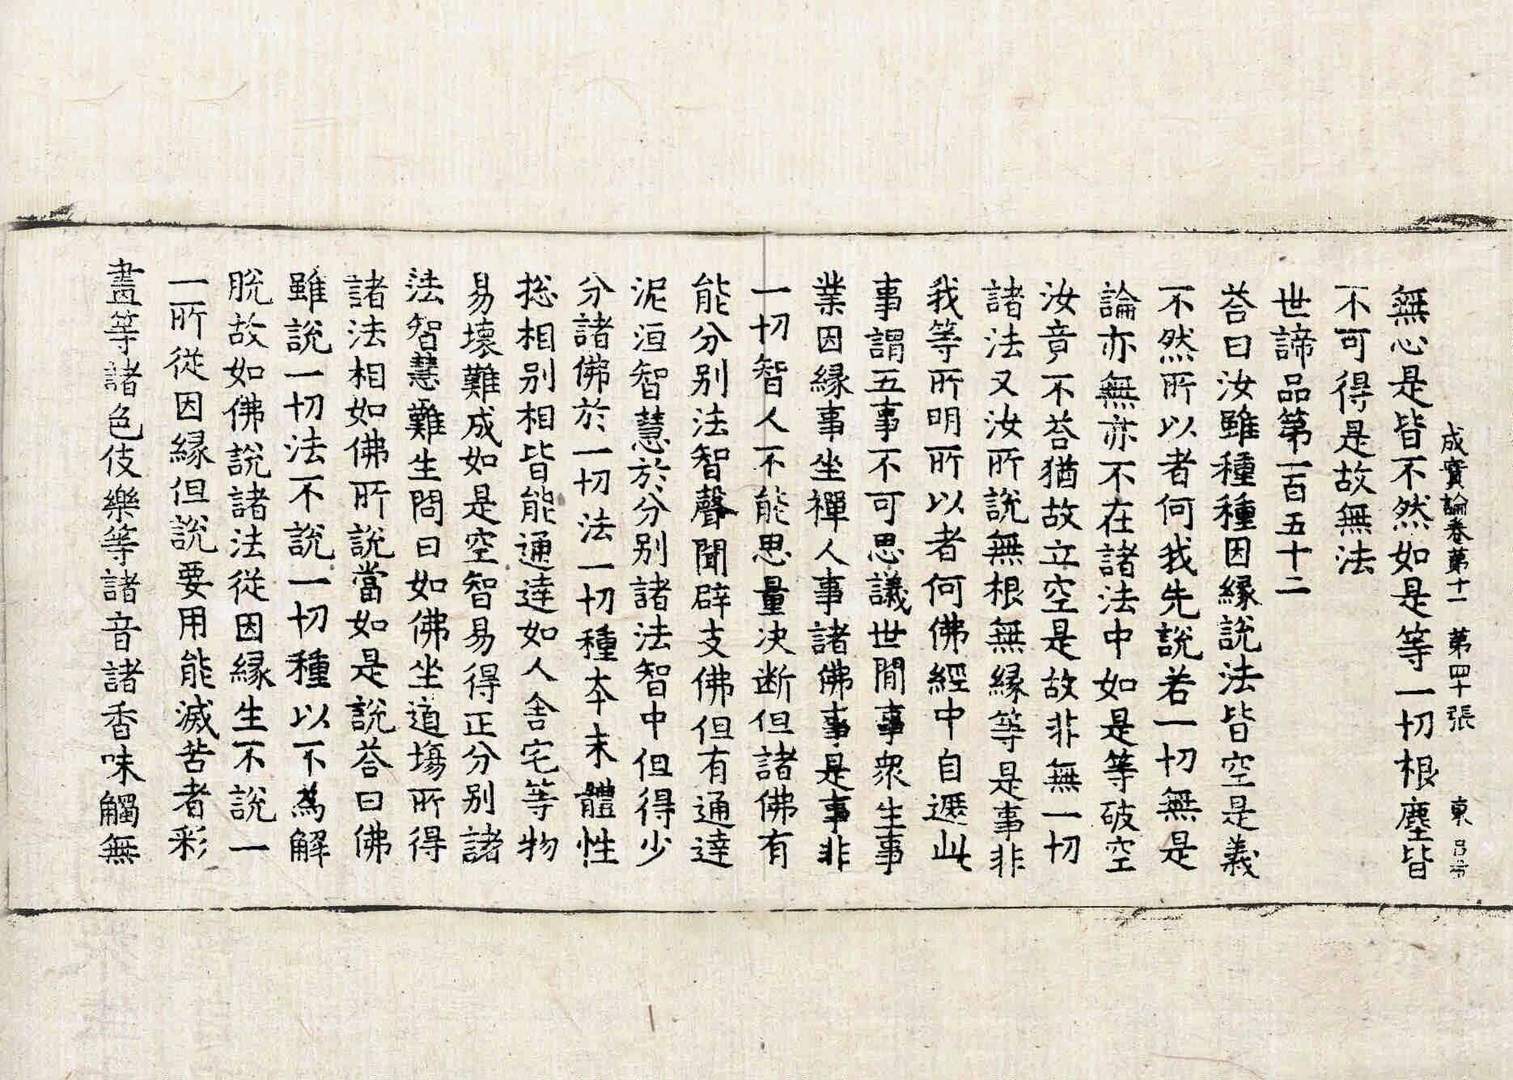 成實論卷第十一 第四十張 東
無心是皆不然如是等一切根塵皆
不可得是故無法
世諦品第一百五十二
荅曰汝雖種種因縁說法皆空是義
不然所以者何我先說若一切無是
論亦無亦不在諸法中如是等破空
汝竟不荅猶故立空是故非無一切
諸法又汝所說無根無縁等是事非
我等所明所以者何佛經中自遮此
事謂五事不可思議世間事衆生事
業因縁事坐禪人事諸佛事是事非
一切智人不能思量决断但諸佛有
能分别法智聲聞辟支佛但有通達
泥洹智慧於分别諸法智中但得少
分諸佛於一切法一切種夲末體性
揔相别相皆能通達如人舎宅等物
易壞難成如是空智易得正分别諸
法智慧難生問曰如佛坐道場所得
諸法相如佛所說當如是說荅曰佛
雖說一切法不說一切種以不為解
脫故如佛說諸法從因縁生不說一
一所從因縁但說要用能滅苦者彩
畫等諸色伎樂等諸音諸香味觸無